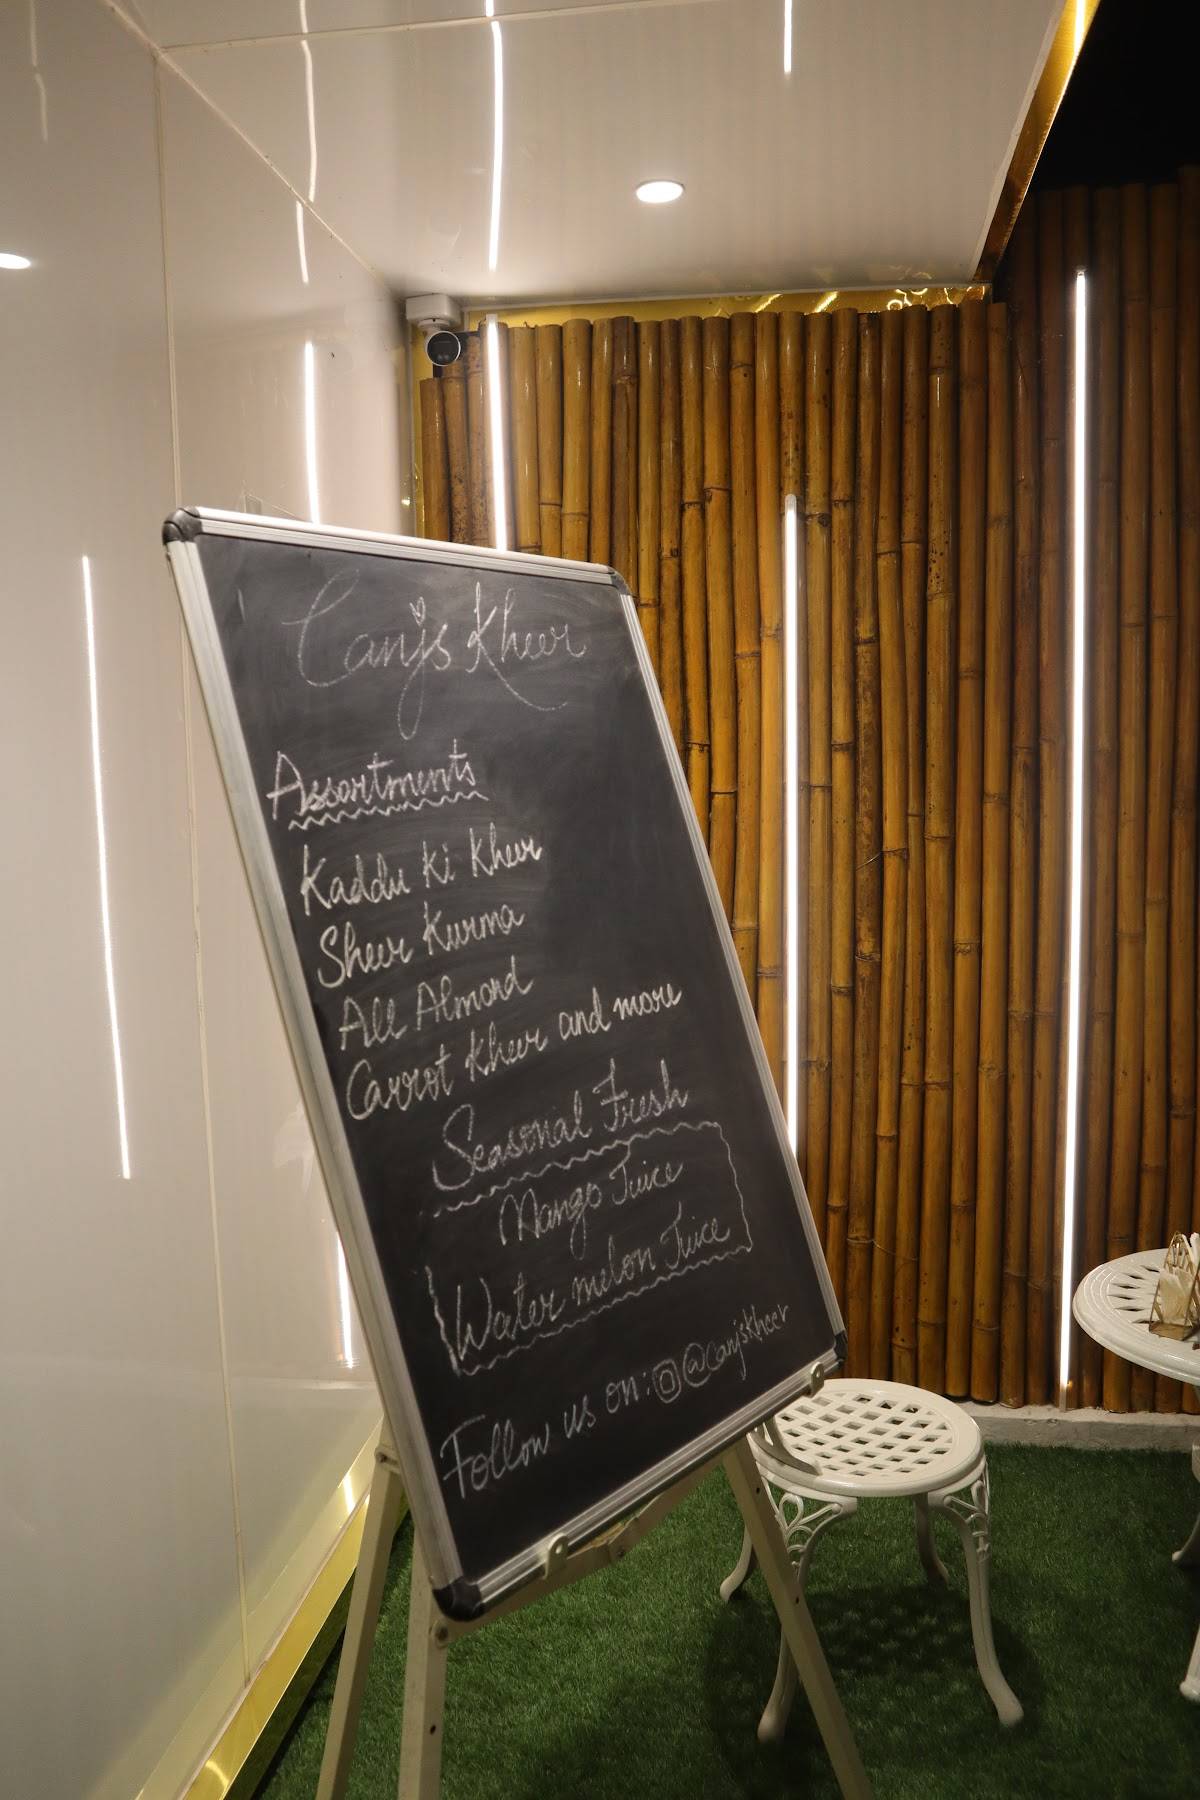 Canjs Kheer
Assortments
Kaddu Ki Kheer
Sheer Kurma
All Almond
Carrot Kheer and more
Seasonal Fresh
Mango Juice
Water melon Juice
Follow us on: @canjskheer